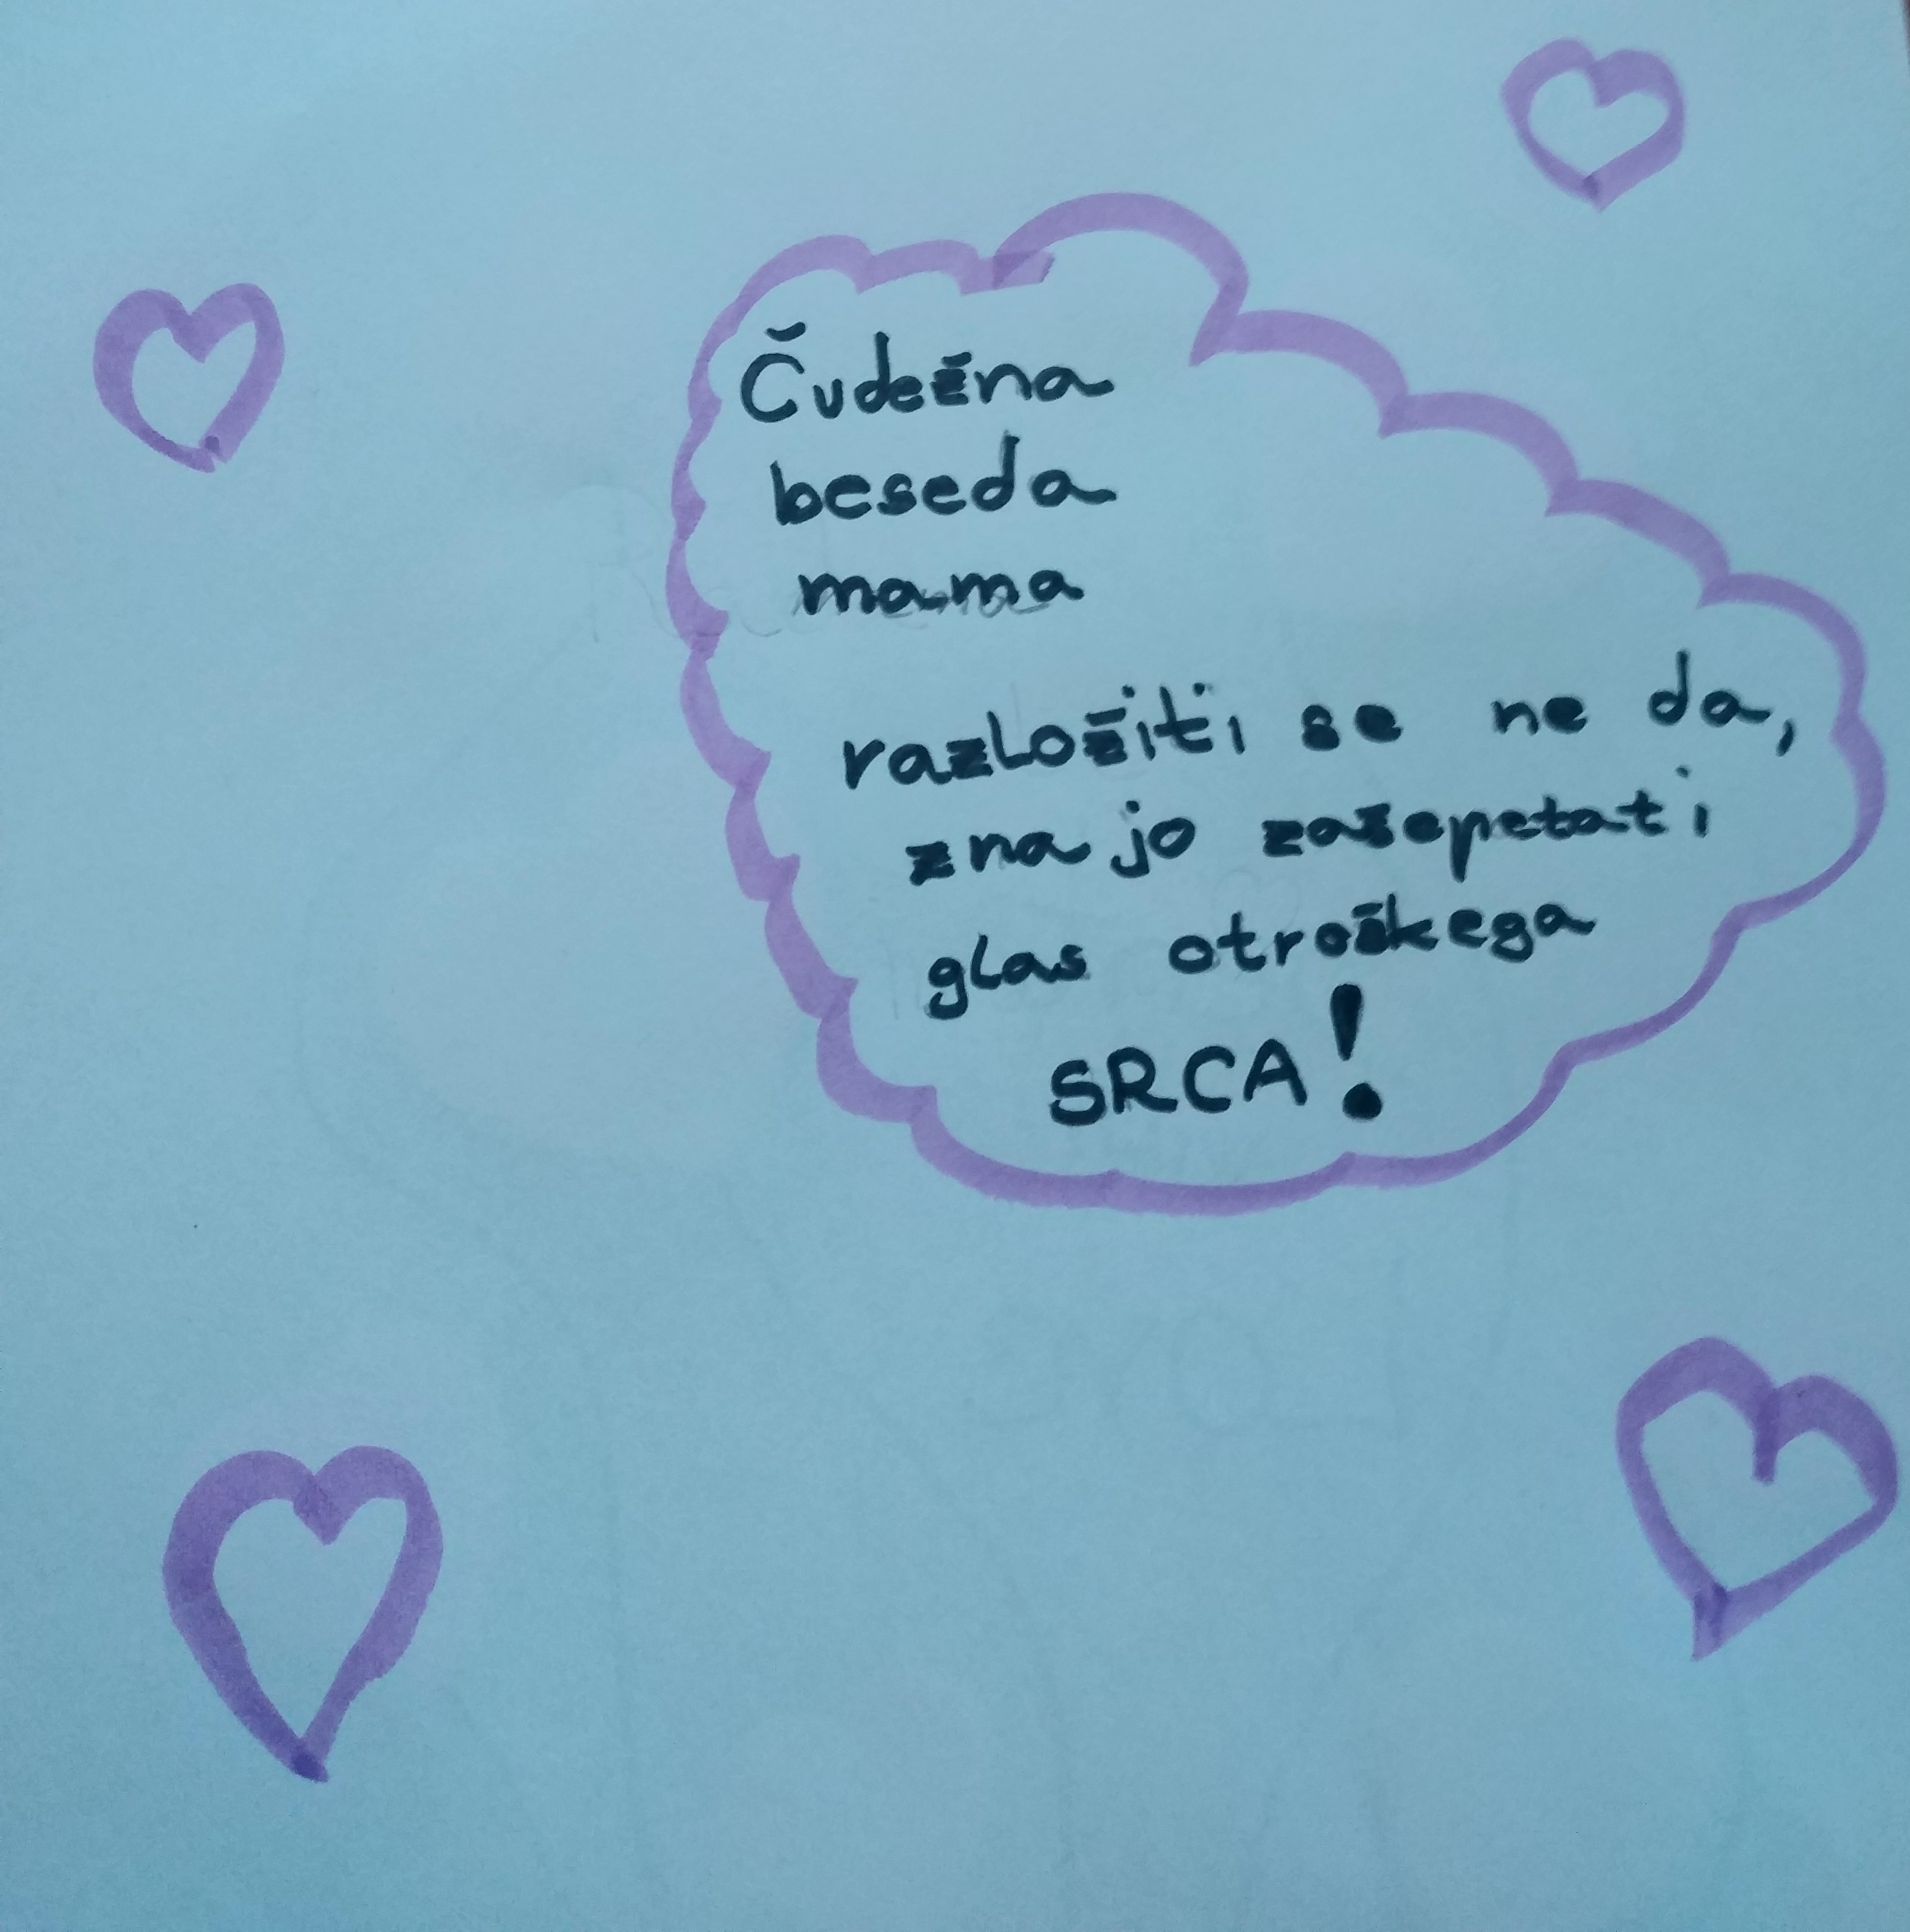 Čudežna
beseda
mama
razložiti se ne da,
zna jo zašepetati
glas otroškega
SRCA!